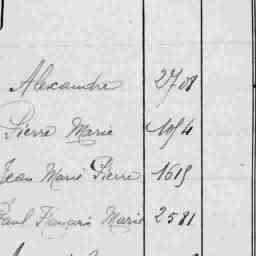 Alexandre 2708
Pierre Marie 1054
Jean Marie Pierre 1615
Paul François Marie 2581